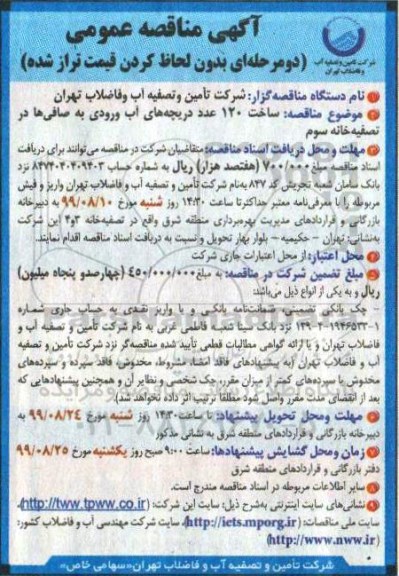 آگهی مناقصه عمومی
(دومرحله‌ای بدون لحاظ کردن قیمت تراز شده)
شرکت تأمین و تصفیه آب
و فاضلاب تهران
نام دستگاه مناقصه‌گزار: شرکت تأمین وتصفیه آب وفاضلاب تهران
موضوع مناقصه: ساخت ۱۲۰ عدد دریچه‌های آب ورودی به صافی‌ها در
تصفیه‌خانه سوم
مهلت ومحل دریافت اسناد مناقصه: متقاضیان شرکت در مناقصه می‌توانند برای دریافت
اسناد مناقصه مبلغ ۷۰۰/۰۰۰ (هفتصد هزار) ریال به شماره حساب ۸۴۷۴۰۴۰۴۰۹۴۰۳ نزد
بانک سامان شعبه تجریش کد ۸۴۷ به‌نام شرکت تأمین و تصفیه آب و فاضلاب تهران واریز و فیش
مربوطه را با معرفی‌نامه معتبر حداکثر تا ساعت ۱۴:۳۰ روز شنبه مورخ ۹۹/۰۸/۱۰ به دبیرخانه
بازرگانی و قراردادهای مدیریت بهره‌برداری منطقه شرق واقع در تصفیه‌خانه ۳و۴ این شرکت
به‌نشانی: تهران - حکیمیه - بلوار بهار تحویل و نسبت به دریافت اسناد مناقصه اقدام نمایند.
محل اعتبار: از محل اعتبارات جاری شرکت
مبلغ تضمین شرکت در مناقصه: به مبلغ ۴۵۰/۰۰۰/۰۰۰ (چهارصدو پنجاه میلیون)
ریال و به یکی از انواع ذیل می‌باشد:
- چک بانکی تضمینی، ضمانت‌نامه بانکی و یا واریز نقدی به حساب جاری شماره
۱-۱۹۴۶۵۳۳-۴-۱۳۹ نزد بانک سینا شعبه فاطمی غربی به نام شرکت تأمین و تصفیه آب و
فاضلاب تهران و یا ارائه گواهی مطالبات قطعی تأیید شده مناقصه‌گر نزد شرکت تأمین و تصفیه
آب و فاضلاب تهران (به پیشنهادهای فاقد امضا، مشروط، مخدوش، فاقد سپرده و سپرده‌های
مخدوش یا سپرده‌های کمتر از میزان مقرر، چک شخصی و نظایر آن و همچنین پیشنهادهایی که
بعد از انقضای مدت مقرر واصل شود مطلقاً ترتیب اثر داده نخواهد شد).
مهلت ومحل تحویل پیشنهاد: تا ساعت ۱۴:۳۰ روز شنبه مورخ ۹۹/۰۸/۲۴ به
دبیرخانه بازرگانی و قراردادهای منطقه شرق به نشانی مذکور
زمان ومحل گشایش پیشنهادها: ساعت ۹:۰۰ صبح روز یکشنبه مورخ ۹۹/۰۸/۲۵
دفتر بازرگانی و قراردادهای منطقه شرق
سایر اطلاعات مربوطه در اسناد مناقصه مندرج است.
نشانی‌های سایت اینترنتی به‌شرح ذیل: سایت این شرکت: (http://tww.tpww.co.ir)،
سایت ملی مناقصات: (http://iets.mporg.ir)، سایت شرکت مهندسی آب و فاضلاب کشور:
(http://www.nww.ir)
شرکت تأمین و تصفیه آب و فاضلاب تهران «سهامی خاص»